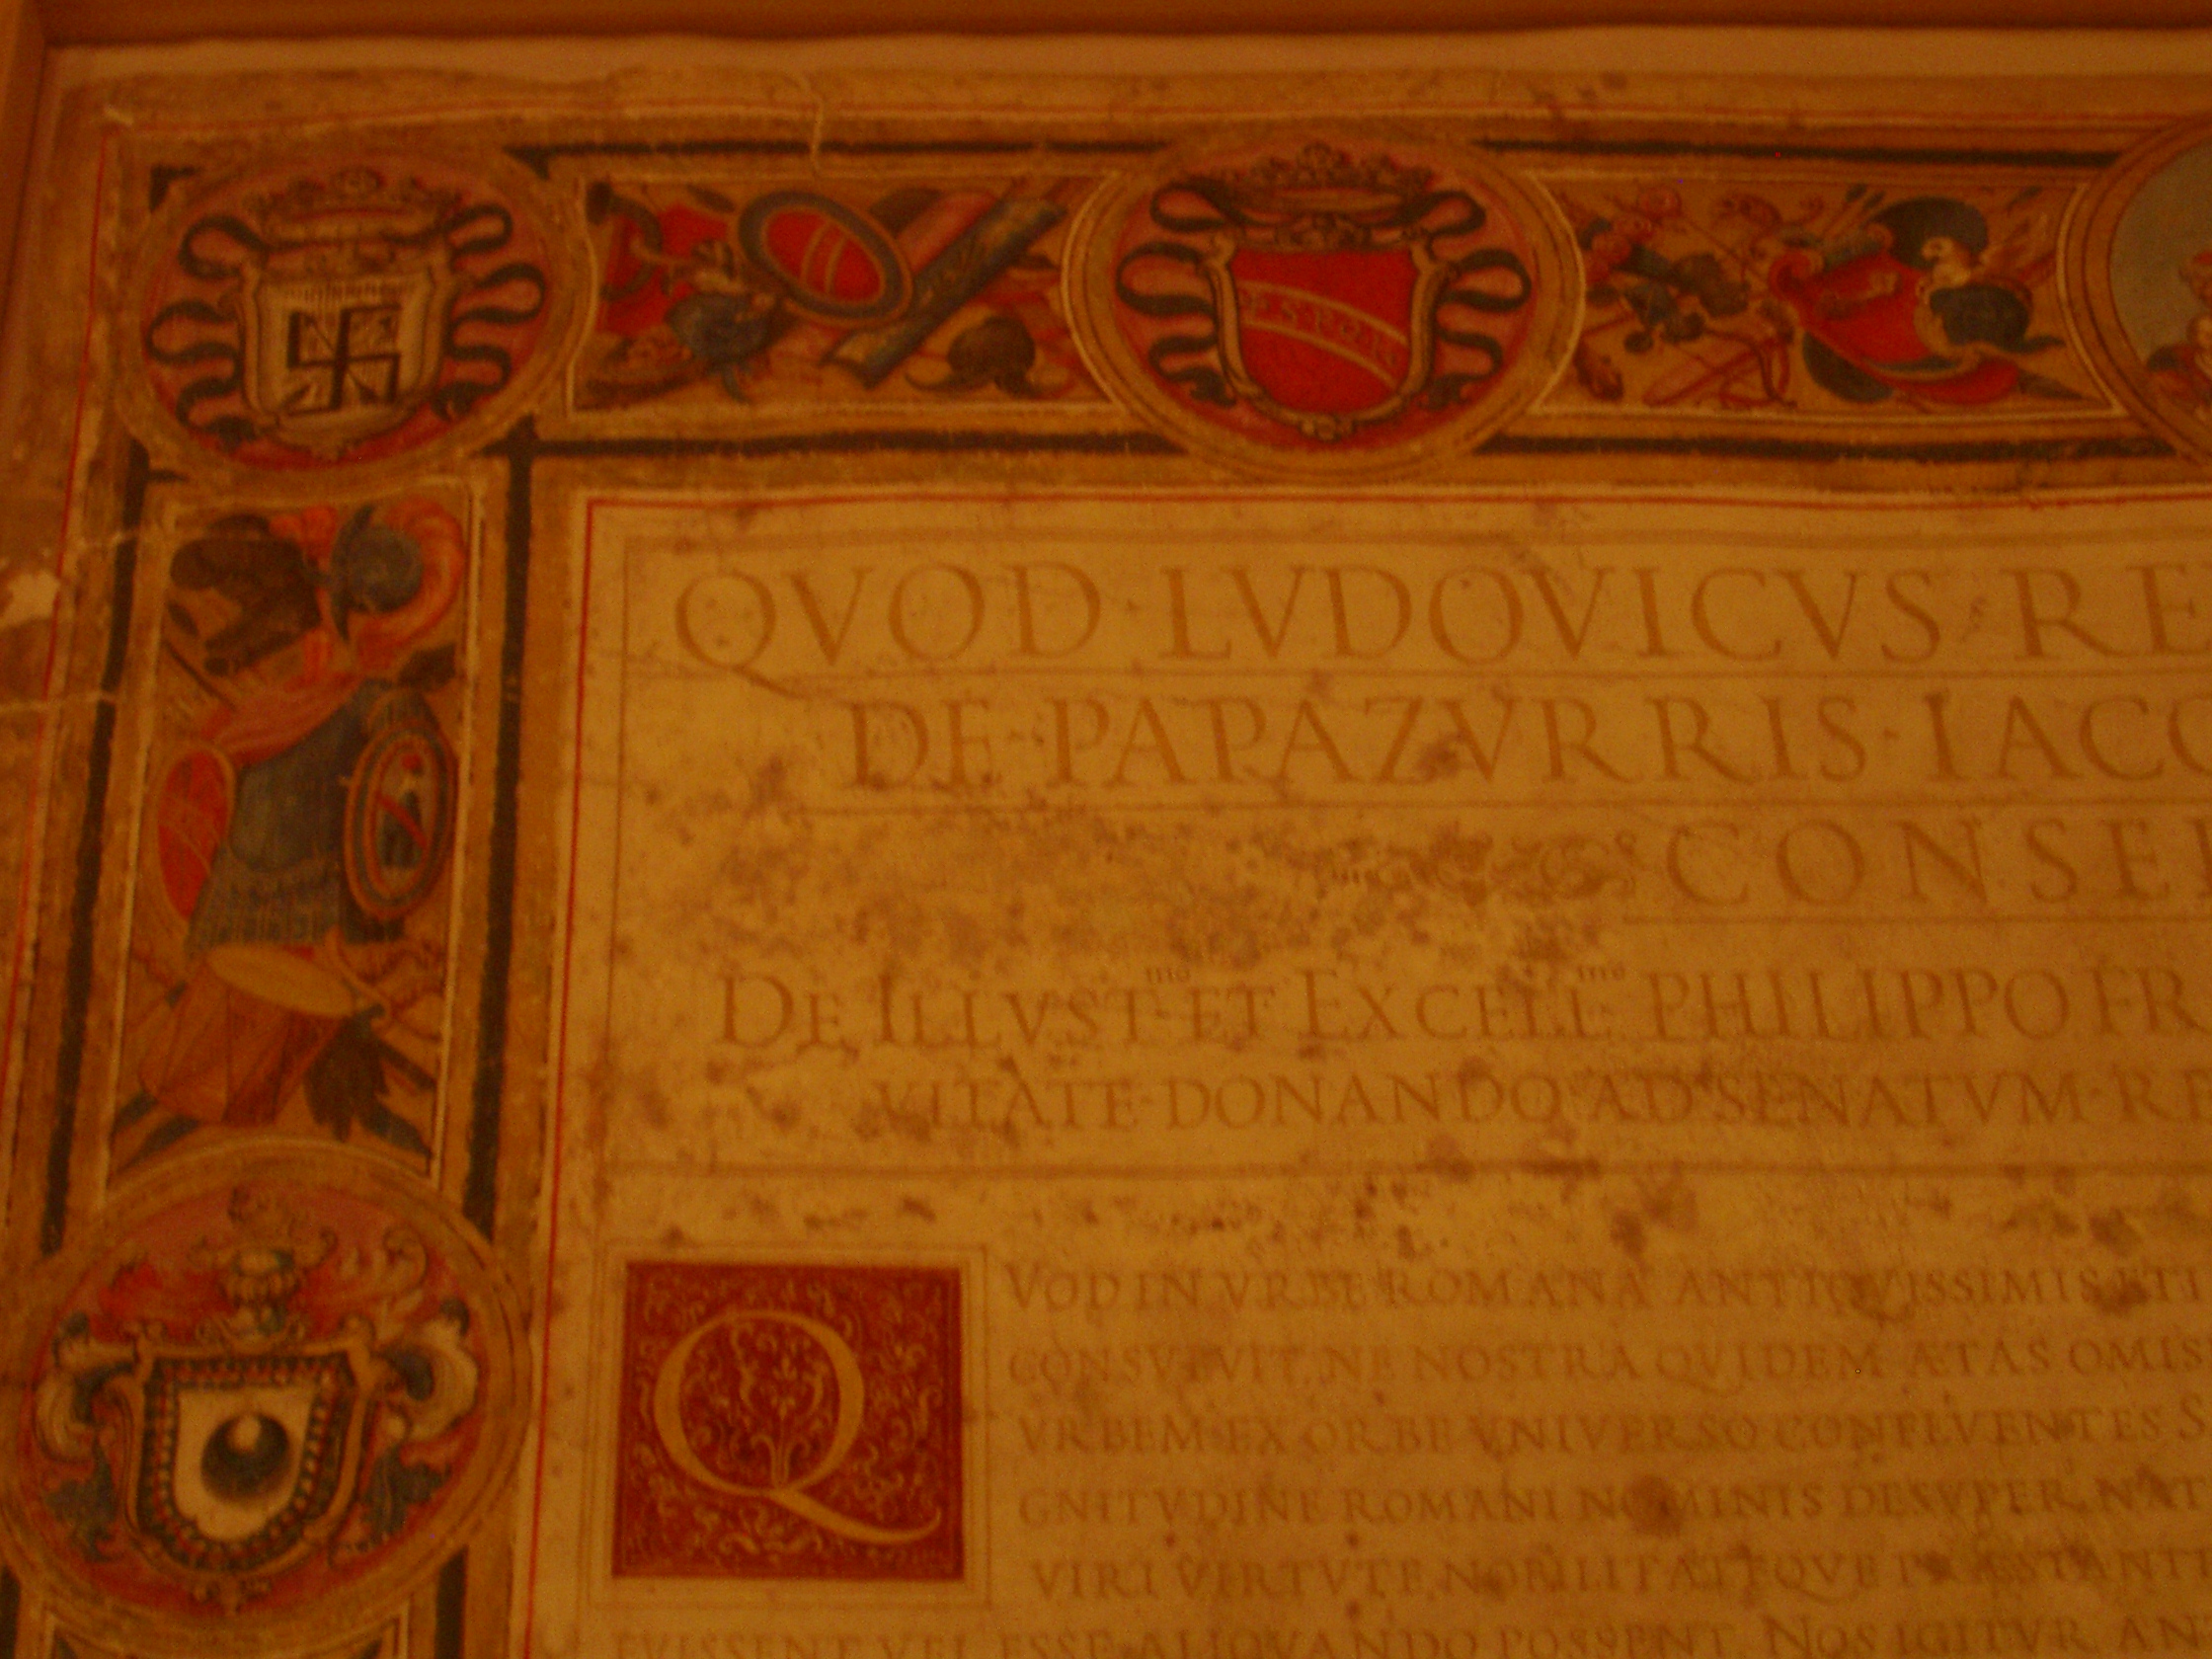 S·P·Q·R
QVOD · LVDOVICVS · RE
DE · PAPAZVRRIS · IACO
CONSER
DE ILLVST^mo ET EXCELL^mo PHILIPPO FR
VITATE · DONANDO · AD SENATVM · RE
QVOD IN VRBE ROMANA ANTIQVISSIMIS ETI
CONSVEVIT, NE NOSTRA QVIDEM ÆTAS OMIS
VRBEM EX ORBE VNIVERSO CONFLVENTES S
GNITVDINE ROMANI NOMINIS DESVPER NAT
VIRI VIRTVTE, NOBILITATEQVE PRÆSTANTI
FVISSENT, VEL ESSE ALIQVANDO POSSENT. NOS IGITVR AN